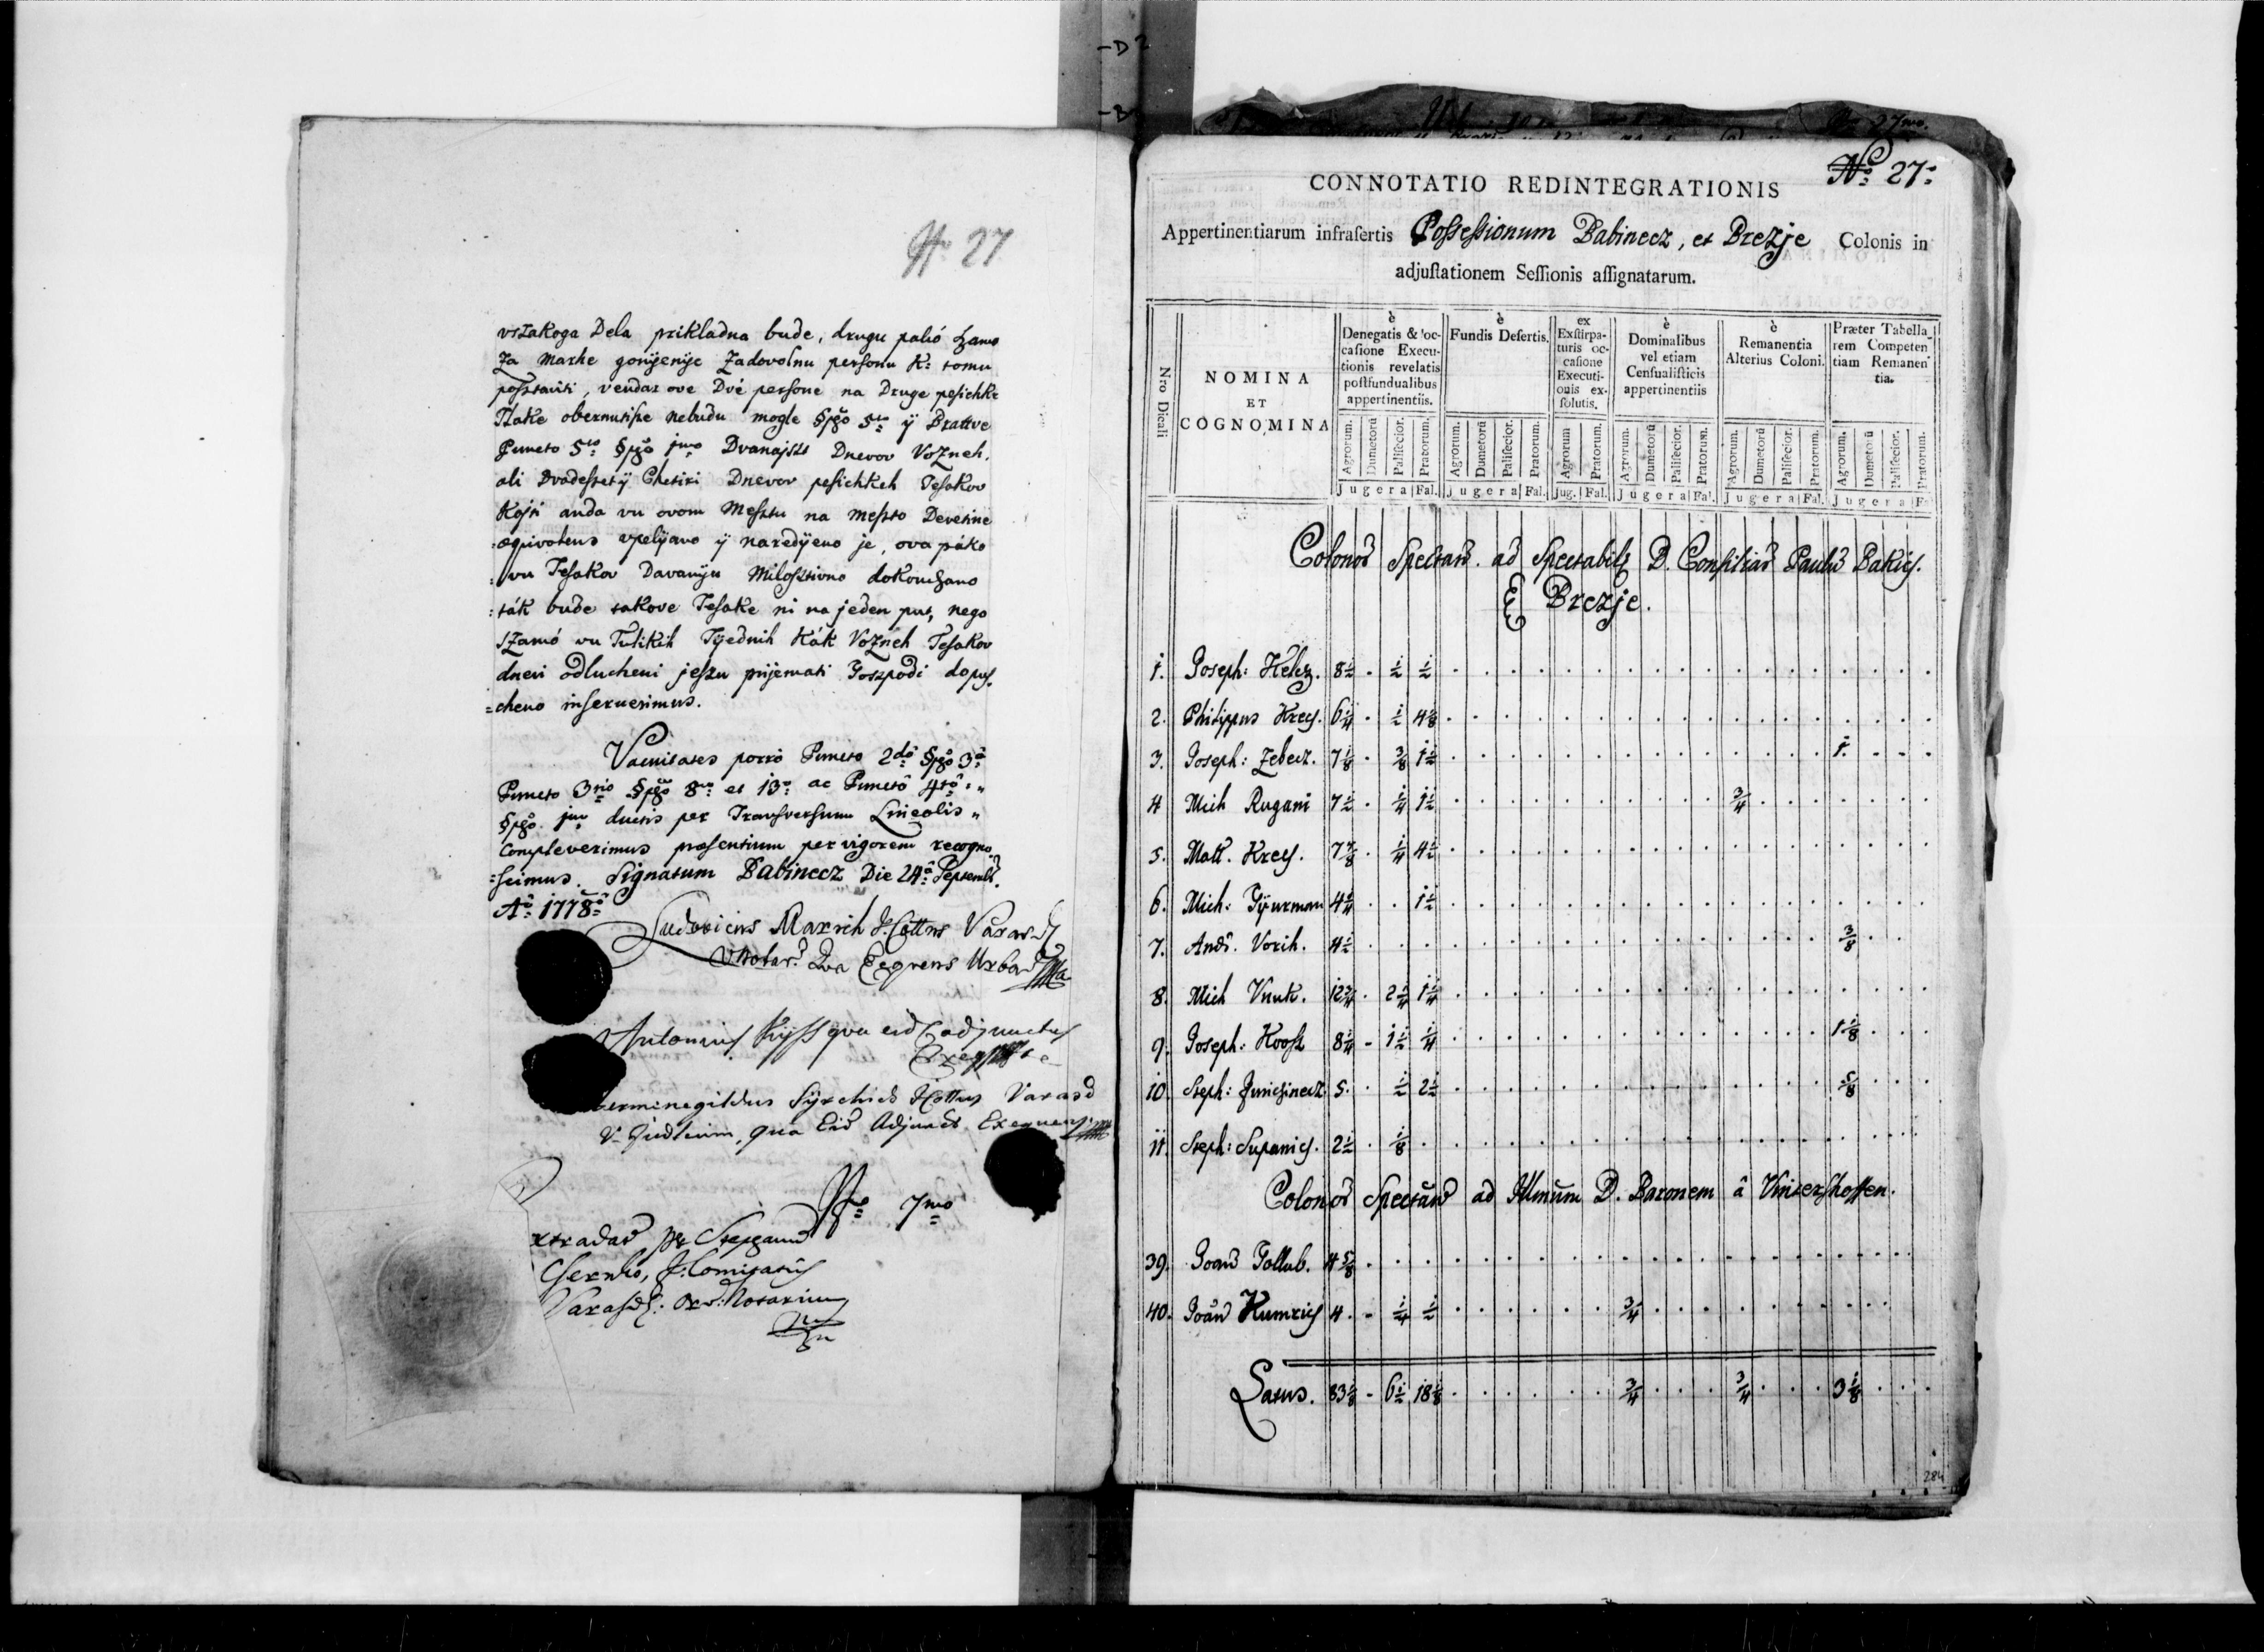 No 27
vszakoga Dela prikladna bude, drugu pako szamo
za Marhe gonyenye zadovolnu personu K: tomu
posztaviti, vendar ove Dvé persone na Druge pesichke
Tlake obernutisze nebudu mogle §pho 5to ÿ Drattve
Puncto 5to §pho jmo Dvanajszt Dnevov Vozneh,
ali dvadeszetÿ Chetiri Dnevov pesichkeh Tesakov
Koji anda vu ovom Mesztu na meszto Devetine
æquivalens vpelÿano ÿ naredÿeno je, ova páko
vu Tesakov Davanÿu Milosztivno dokonchano
:ták bude takove Tesake ni na jeden put, nego
szamó vu Tulikih Tÿednih kák Vozneh Tesakov
dnevi odlucheni jeszu prijemati Goszpodi dopus-
=cheno inseruerimus.
Vacuitates porro Puncto 2do §pho 3o
Puncto 3tio §pho 8vo et 13o ac Puncto 4to
§pho jmo ductis per Transversum Lineolis
Compleverimus præsentium per vigorem recogno-
:scimus. Signatum Babinecz Die 24a Septembr.
Ao 1778o
Ludovicus Maxich I. Cottus Varasd.
V Notar. Qua Exequens Urbar
Antonius Kyss qua eid. adjunctus
Exequens
Hermenegildus Sÿrchich I Cottus Varasd
V. Judlium, qua Eid Adjunct. Exequens
No 7mo
xtradat per Stephanum
Chernko, I. Comitatus
Varasd: Ord. Notarium
No 27o
CONNOTATIO REDINTEGRATIONIS
Appertinentiarum infrasertis Possessionum Babinecz, et Brezje Colonis in
adjustationem Sessionis assignatarum.
Nro Dicali
NOMINA
ET
COGNOMINA
è
Denegatis & oc-
casione Execu-
tionis revelatis
postfundualibus
appertinentiis.
è
Fundis Desertis.
ex
Exstirpa-
turis oc-
casione
Executi-
onis ex-
solutis.
è
Dominalibus
vel etiam
Censualisticis
appertinentiis
è
Remanentia
Alterius Coloni.
Præter Tabella
rem Competen
tiam Remanen
tia.
Agrorum. Dumetorū Paliscior. Pratorum. Agrorum. Dumetorū Paliscior. Pratorum. Agrorum. Pratorum. Agrorum. Dumetorū Paliscior. Pratorum. Agrorum. Dumetorū Paliscior. Pratorum. Agrorum. Dumetorū Paliscior. Pratorum.
Jugera Fal. Jugera Fal. Jug. Fal. Jugera Fal. Jugera Fal. Jugera Fa
Colonor Spectan. ad Spectabilem D. Consiliar Paulum Rakich.
E Brezje.
1. Joseph: Helez. 8½ . ½ ½
2. Philippus Krecs. 6¼ . ½ 4⅛
3. Joseph: Zebecz. 7⅛ . ⅜ 1½ 1.
4 Mich Rugani 7½ . ¼ 1½ ¾
5. Math. Krecs. 7⅞ . ¼ 4½
6. Mich: Gyurman 4¼ . . 1½
7. Andr. Vorih. 4½ ⅜
8. Mich Vnuk. 12¾ . 2¼ 1¼
9. Joseph: Hoosz 8¼ - 1½ ¼ 1⅛
10. Steph: Junchinecz 5. . ½ 2½ ⅝
11. Steph: Supanich. 2½ . ⅛
Colonor Spectan. ad Illmum D. Baronem â Vintershoffen.
39. Joan Gollub. 4⅝
40. Joan Humrich 4. - ¼ ½ ¾
Latus. 83⅛ - 6½ 18⅛ ¾ ¾ 3⅛
284